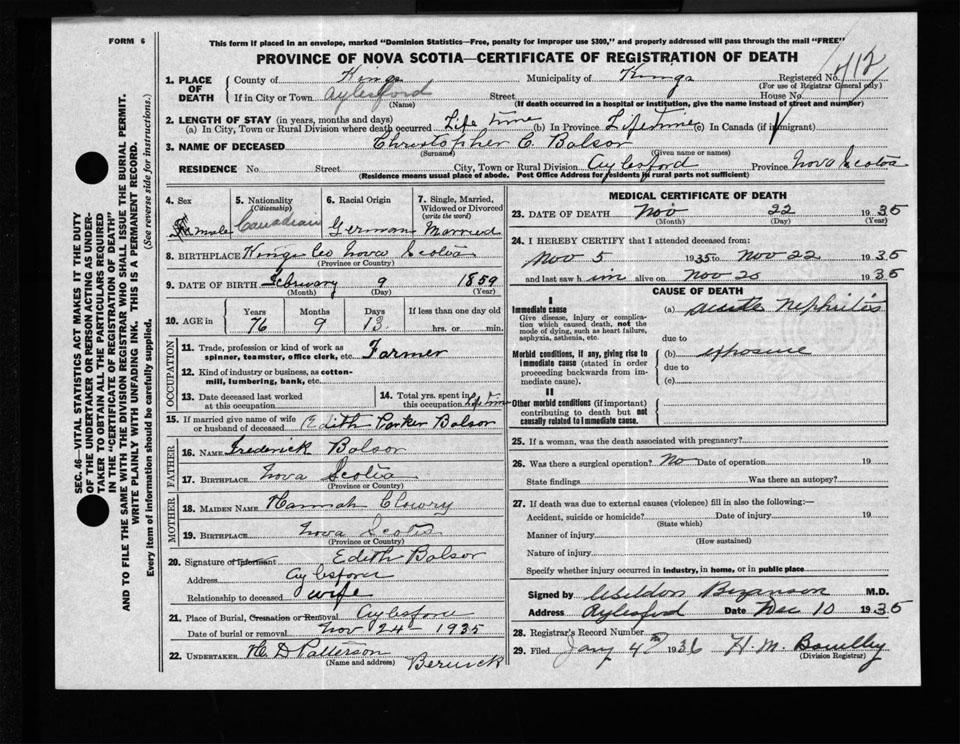 FORM 6
This form if placed in an envelope, marked "Dominion Statistics—Free, penalty for improper use $300," and properly addressed will pass through the mail "FREE"
PROVINCE OF NOVA SCOTIA—CERTIFICATE OF REGISTRATION OF DEATH
1. PLACE OF DEATH County of Kings Municipality of Kings Registered No. 412
(For use of Registrar General only)
If in City or Town Aylesford Street House No.
(Name) (If death occurred in a hospital or institution, give the name instead of street and number)
2. LENGTH OF STAY (in years, months and days)
(a) In City, Town or Rural Division where death occurred Life time (b) In Province Lifetime (c) In Canada (if immigrant)
3. NAME OF DECEASED Christopher C. Balsor
(Surname) (Given name or names)
RESIDENCE No. Street City, Town or Rural Division Aylesford Province Nova Scotia
(Residence means usual place of abode. Post Office Address for residents in rural parts not sufficient)
4. Sex male
5. Nationality (Citizenship) Canadian
6. Racial Origin German
7. Single, Married, Widowed or Divorced (write the word) Married
8. BIRTHPLACE Kings Co Nova Scotia
(Province or Country)
9. DATE OF BIRTH February 9 1859
(Month) (Day) (Year)
10. AGE in Years Months Days If less than one day old
76 9 13 hrs. or min.
OCCUPATION
11. Trade, profession or kind of work as spinner, teamster, office clerk, etc. Farmer
12. Kind of industry or business, as cotton-mill, lumbering, bank, etc.
13. Date deceased last worked at this occupation
14. Total yrs. spent in this occupation life time
15. If married give name of wife or husband of deceased Edith Parker Balsor
FATHER
16. NAME Frederick Balsor
17. BIRTHPLACE Nova Scotia
(Province or Country)
MOTHER
18. MAIDEN NAME Hannah
19. BIRTHPLACE Nova Scotia
(Province or Country)
20. Signature of Informant Edith Balsor
Address Aylesford
Relationship to deceased wife
21. Place of Burial, Cremation or Removal Aylesford
Date of burial or removal Nov 24 - 1935
22. UNDERTAKER H. D Patterson Berwick
(Name and address)
MEDICAL CERTIFICATE OF DEATH
23. DATE OF DEATH Nov 22 1935
(Month) (Day) (Year)
24. I HEREBY CERTIFY that I attended deceased from:
Nov 5 1935 to Nov 22 1935
and last saw him alive on Nov 20 1935
CAUSE OF DEATH
I
Immediate cause
Give disease, injury or complication which caused death, not the mode of dying, such as heart failure, asphyxia, asthenia, etc.
(a) acute Nephritis
due to
Morbid conditions, if any, giving rise to immediate cause (stated in order proceeding backwards from immediate cause).
(b) exposure
due to
(c)
II
Other morbid conditions (if important) contributing to death but not causally related to immediate cause.
25. If a woman, was the death associated with pregnancy?
26. Was there a surgical operation? No Date of operation 19
State findings Was there an autopsy?
27. If death was due to external causes (violence) fill in also the following:—
Accident, suicide or homicide? Date of injury 19
(State which)
Manner of injury
(How sustained)
Nature of injury
Specify whether injury occurred in industry, in home, or in public place
Signed by Weldon M.D.
Address Aylesford Date Dec 10 1935
28. Registrar's Record Number
29. Filed Jany 4th 1936 H. M.
(Division Registrar)
SEC. 46—VITAL STATISTICS ACT MAKES IT THE DUTY
OF THE UNDERTAKER OR PERSON ACTING AS UNDER-
TAKER TO OBTAIN ALL THE PARTICULARS REQUIRED
IN THE "CERTIFICATE OF REGISTRATION OF DEATH"
AND TO FILE THE SAME WITH THE DIVISION REGISTRAR WHO SHALL ISSUE THE BURIAL PERMIT.
WRITE PLAINLY WITH UNFADING INK. THIS IS A PERMANENT RECORD.
Every item of information should be carefully supplied. (See reverse side for instructions.)